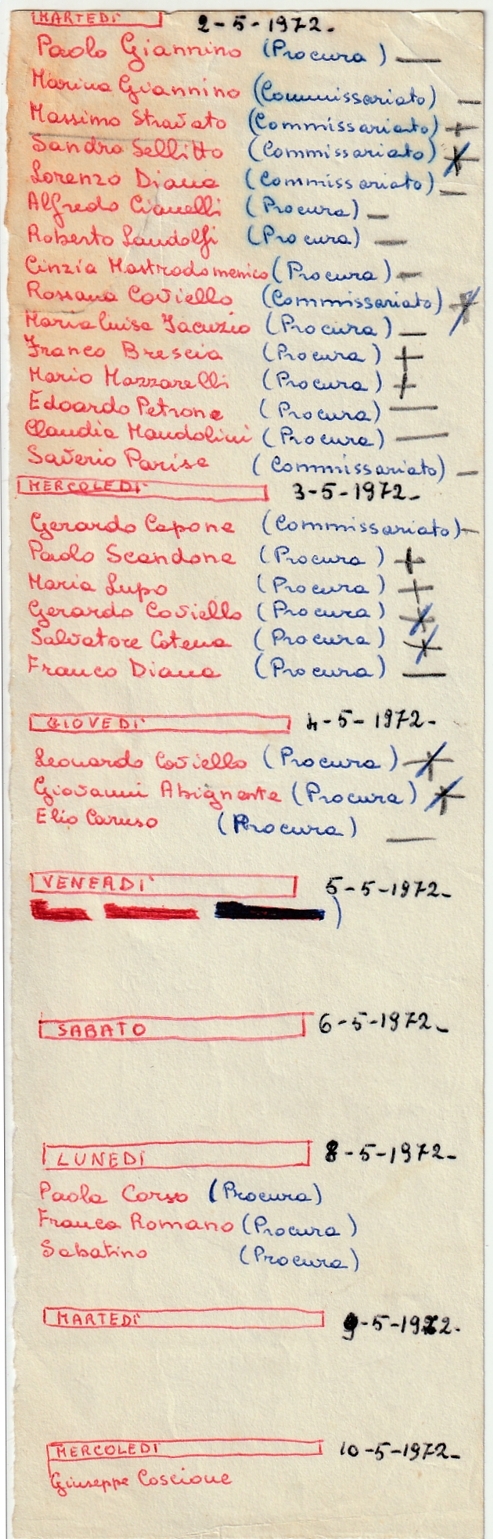 MARTEDÌ 2-5-1972.
Paolo Giannino (Procura) —
Marina Giannino (Commissariato) —
Massimo Stravato (Commissariato) +
Sandro Sellitto (Commissariato)
Lorenzo Diana (Commissariato) —
Alfredo Cianelli (Procura) —
Roberto Landolfi (Procura) —
Cinzia Mastrodomenico (Procura) —
Rossana Coviello (Commissariato)
Maria Luisa Iacuzio (Procura) —
Franco Brescia (Procura) +
Mario Mazzarelli (Procura) +
Edoardo Petrone (Procura) —
Claudia Mandolini (Procura) —
Saverio Parise (Commissariato) —
MERCOLEDÌ 3-5-1972-
Gerardo Capone (Commissariato) —
Paolo Scandone (Procura) +
Maria Lupo (Procura) +
Gerardo Coviello (Procura)
Salvatore Cotena (Procura)
Franco Diana (Procura) —
GIOVEDÌ 4-5-1972-
Leonardo Coviello (Procura)
Giovanni Abignente (Procura)
Elio Caruso (Procura) —
VENERDÌ 5-5-1972-
)
SABATO 6-5-1972-
LUNEDÌ 8-5-1972-
Paola Corso (Procura)
Franca Romano (Procura)
Sabatino (Procura)
MARTEDÌ 9-5-1972.
MERCOLEDÌ 10-5-1972-
Giuseppe Coscione